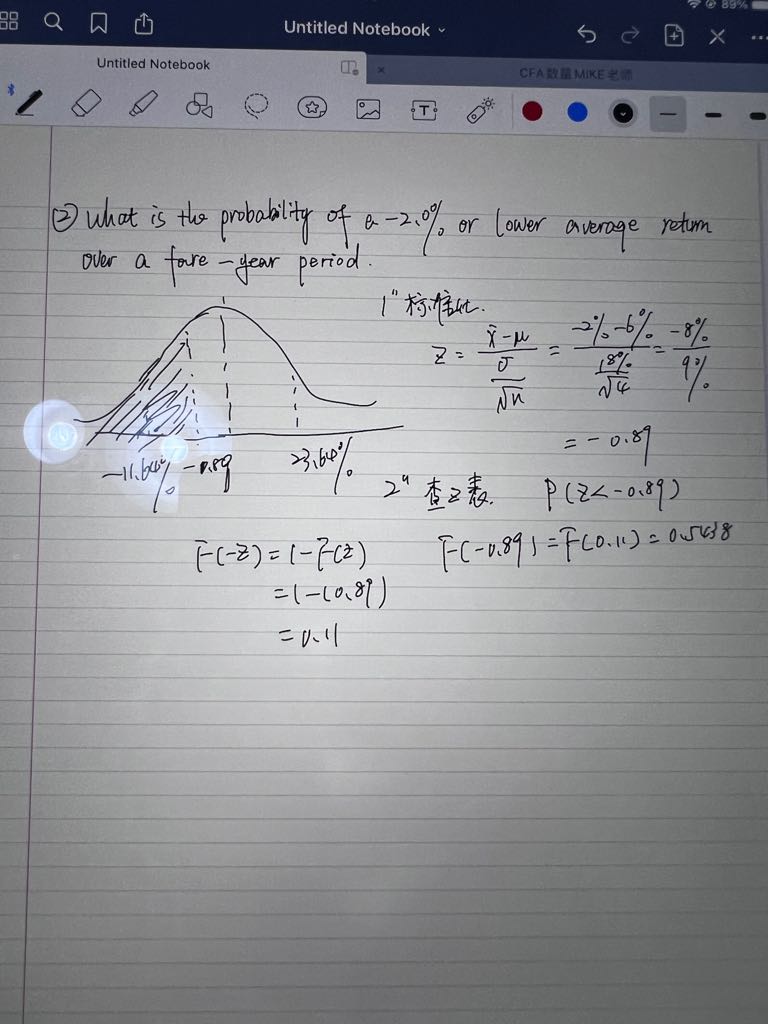 89%
Untitled Notebook
Untitled Notebook
CFA数量MIKE老师
T
② What is the probability of a -2.0% or lower average return
over a foure-year period.
1" 标准化.
Z = (x̄-μ)/(σ/√n) = (-2%-6%)/(18%/√4) = -8%/9%
= -0.89
-11.64% -0.89 23.64%
2" 查z表. P(Z<-0.89)
F(-Z) = 1-F(Z) F(-0.89) = F(0.11) = 0.5438
= 1-(0.89)
= 0.11